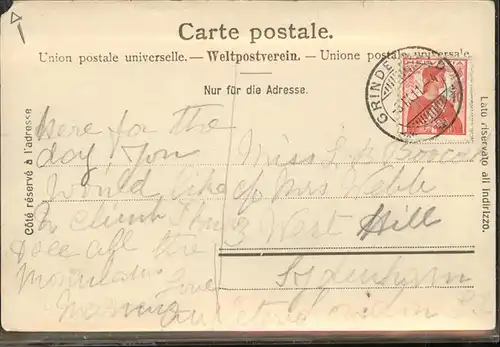 Carte postale.
Union postale universelle. — Weltpostverein. — Unione postale universale
Nur für die Adresse.
Côté réservé à l'adresse
Lato riservato all indirizzo.
GRINDELWALD
here for the
day. You
would like
to climb
see all the
Mountains
Love
Miss
Mrs Webb
West Hill
Sydenham
London